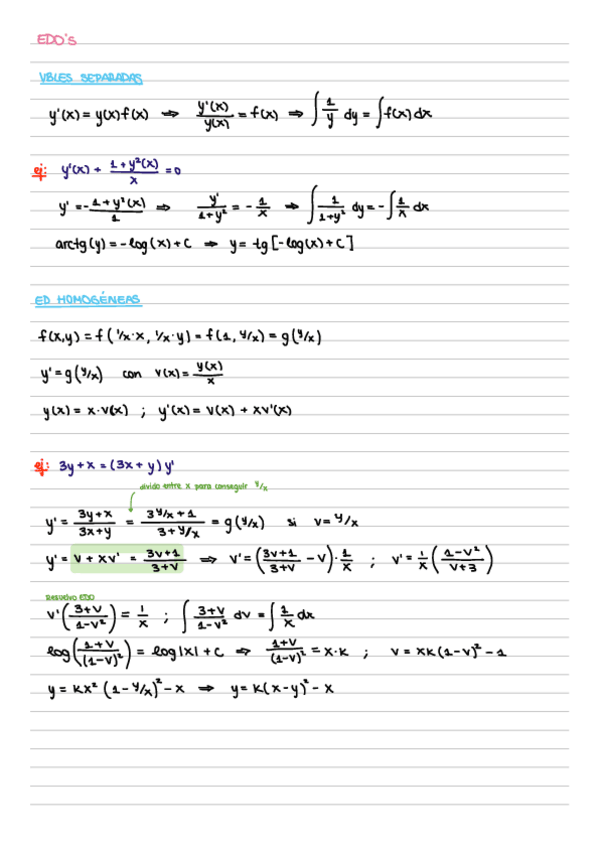 EDO's
VBLES SEPARADAS
y'(x) = y(x) f(x) ⇒ y'(x)/y(x) = f(x) ⇒ ∫ 1/y dy = ∫ f(x) dx
ej: y'(x) + (1+y²(x))/x = 0
y' = -(1+y²(x))/1 ⇒ y'/(1+y²) = -1/x ⇒ ∫ 1/(1+y²) dy = -∫ 1/x dx
arctg(y) = -log(x) + C ⇒ y = tg[-log(x) + C]
ED HOMOGÉNEAS
f(x,y) = f(1/x·x, 1/x·y) = f(1, y/x) = g(y/x)
y' = g(y/x) con v(x) = y(x)/x
y(x) = x·v(x) ; y'(x) = v(x) + xv'(x)
ej: 3y + x = (3x + y) y'
divido entre x para conseguir y/x
y' = (3y+x)/(3x+y) = (3y/x+1)/(3+y/x) = g(y/x) si v = y/x
y' = v + xv' = (3v+1)/(3+v) ⇒ v' = ((3v+1)/(3+v) - v)·1/x ; v' = 1/x ((1-v²)/(v+3))
Resuelvo EDO
v' ((3+v)/(1-v²)) = 1/x ; ∫ (3+v)/(1-v²) dv = ∫ 1/x dx
log((1+v)/(1-v)²) = log|x| + C ⇒ (1+v)/(1-v)² = x·k ; v = xk(1-v)² - 1
y = kx² (1-y/x)² - x ⇒ y = k(x-y)² - x